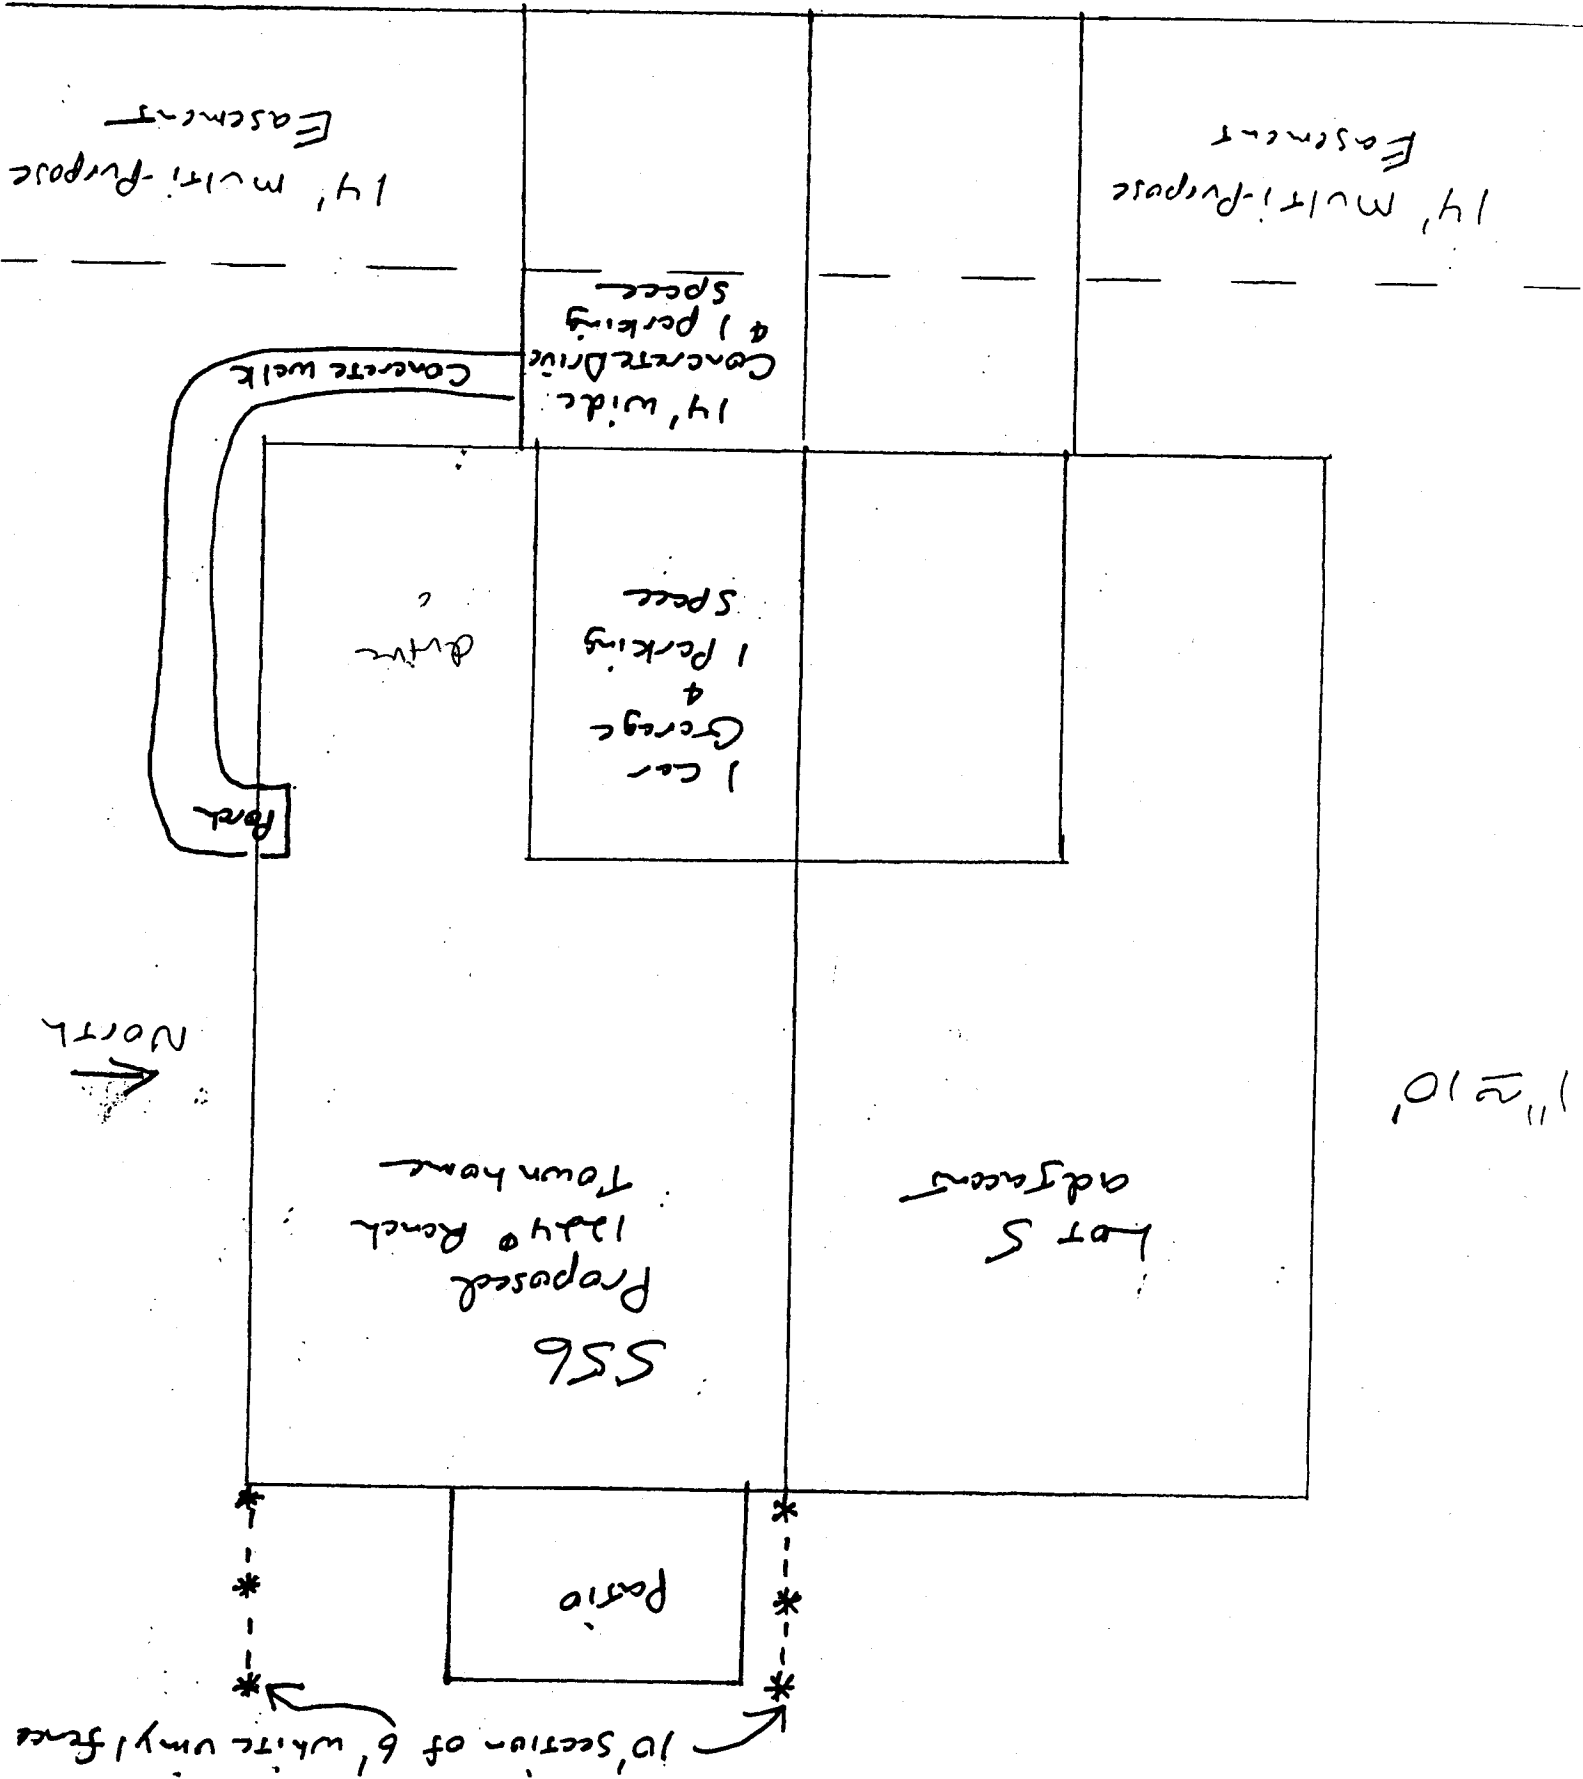 10' Section of 6' white vinyl fence
Patio
Lot 5
adjacent
556
Proposed
1224 ⌀ Ranch
Townhome
1" ≅ 10'
North
Porch
1 Car
Garage
&
1 Parking
Space
14' wide
Concrete Drive
& 1 parking
Space
Concrete walk
14' multi-Purpose
Easement
14' multi-Purpose
Easement